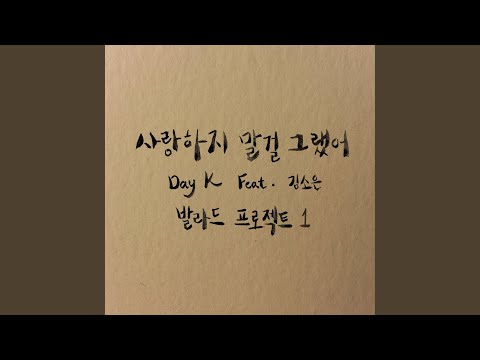 사랑하지 말걸 그랬어
Day K Feat. 김소은
발라드 프로젝트 1